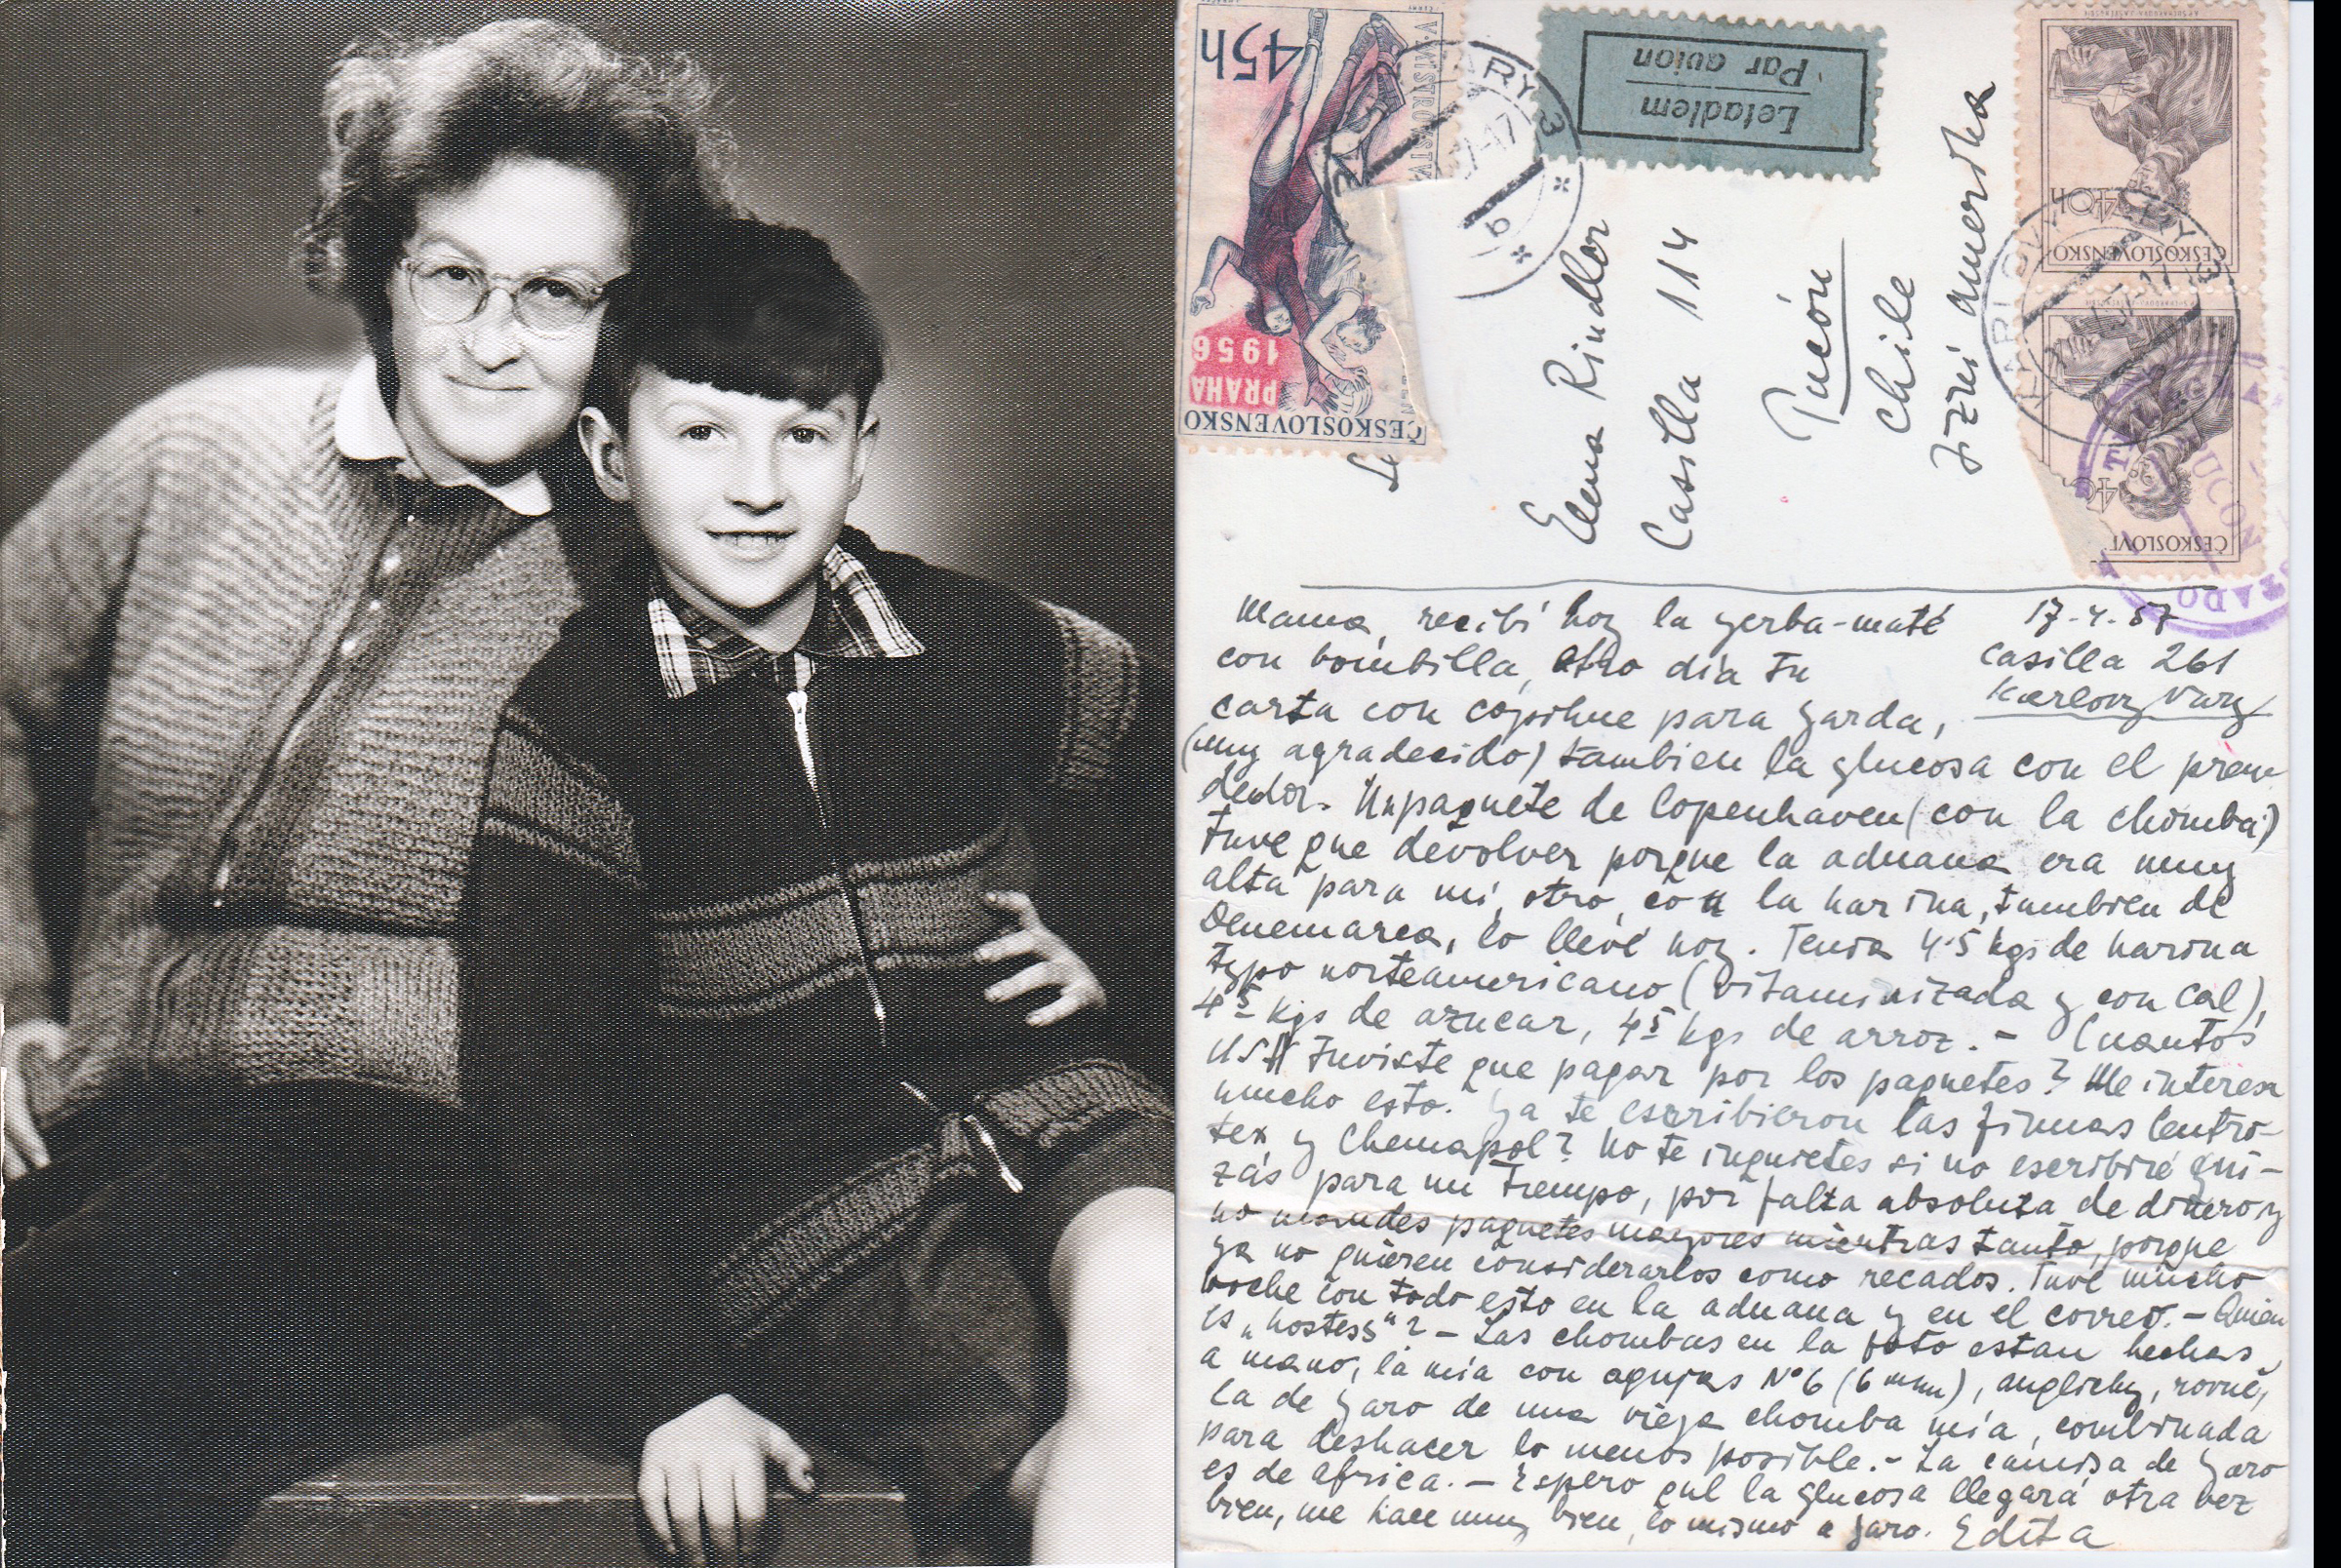 45h
V. MISTROVSTV
PRAHA
1956
ČESKOSLOVENSKO
VARY 3
b
Letadlem
Par avion
40H
ČESKOSLOVENSKO
KARLOVY VARY 3
ČESKOSLOV
PUCON
Elena Rindler
Casilla 114
Pucón
Chile
Jižní Amerika
Mama, recibí hoy la yerba-maté
17-4-57
con bombilla, otro día tu
Casilla 261
Karlovy Vary
carta con copihue para Yarda,
(muy agradecido) tambien la glucosa con el pren-
dedor. Un paquete de Copenhaven (con la chomba)
tuve que devolver porque la aduana era muy
alta para mi, otro, con la harina, tambien de
Denemarca, lo llevé hoy. Tenia 4.5 kgs de harina
typo norteamericano (vitaminizada y con cal),
4⁵ kgs de azucar, 4⁵ kgs de arroz. - Cuantos
US$ tuviste que pagar por los paquetes? Me interesa
mucho esto. Ya te escribieron las firmas Centro-
tex y Chemapol? No te inquietes si no escribiré qui-
zás para un tiempo, por falta absoluta de dinero y
no mandes paquetes mayores mientras tanto, porque
ya no quieren considerarlos como recados. Tuve mucho
boche con todo esto en la aduana y en el correo. - Quien
es „hostess“? - Las chombas en la foto estan hechas
a mano, la mía con agujas Nº 6 (6 mm), anglicky, rovně,
la de Yaro de una vieja chomba mía, combinada
para deshacer lo menos posible. - La camisa de Yaro
es de africa. - Espero que la glucosa llegará otra vez
bien, me hace muy bien, lo mismo a Yaro. Edita